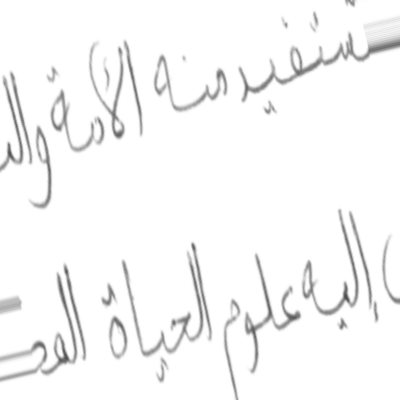 ستفيد منه الأمة وال
إليه علوم الحياة الم